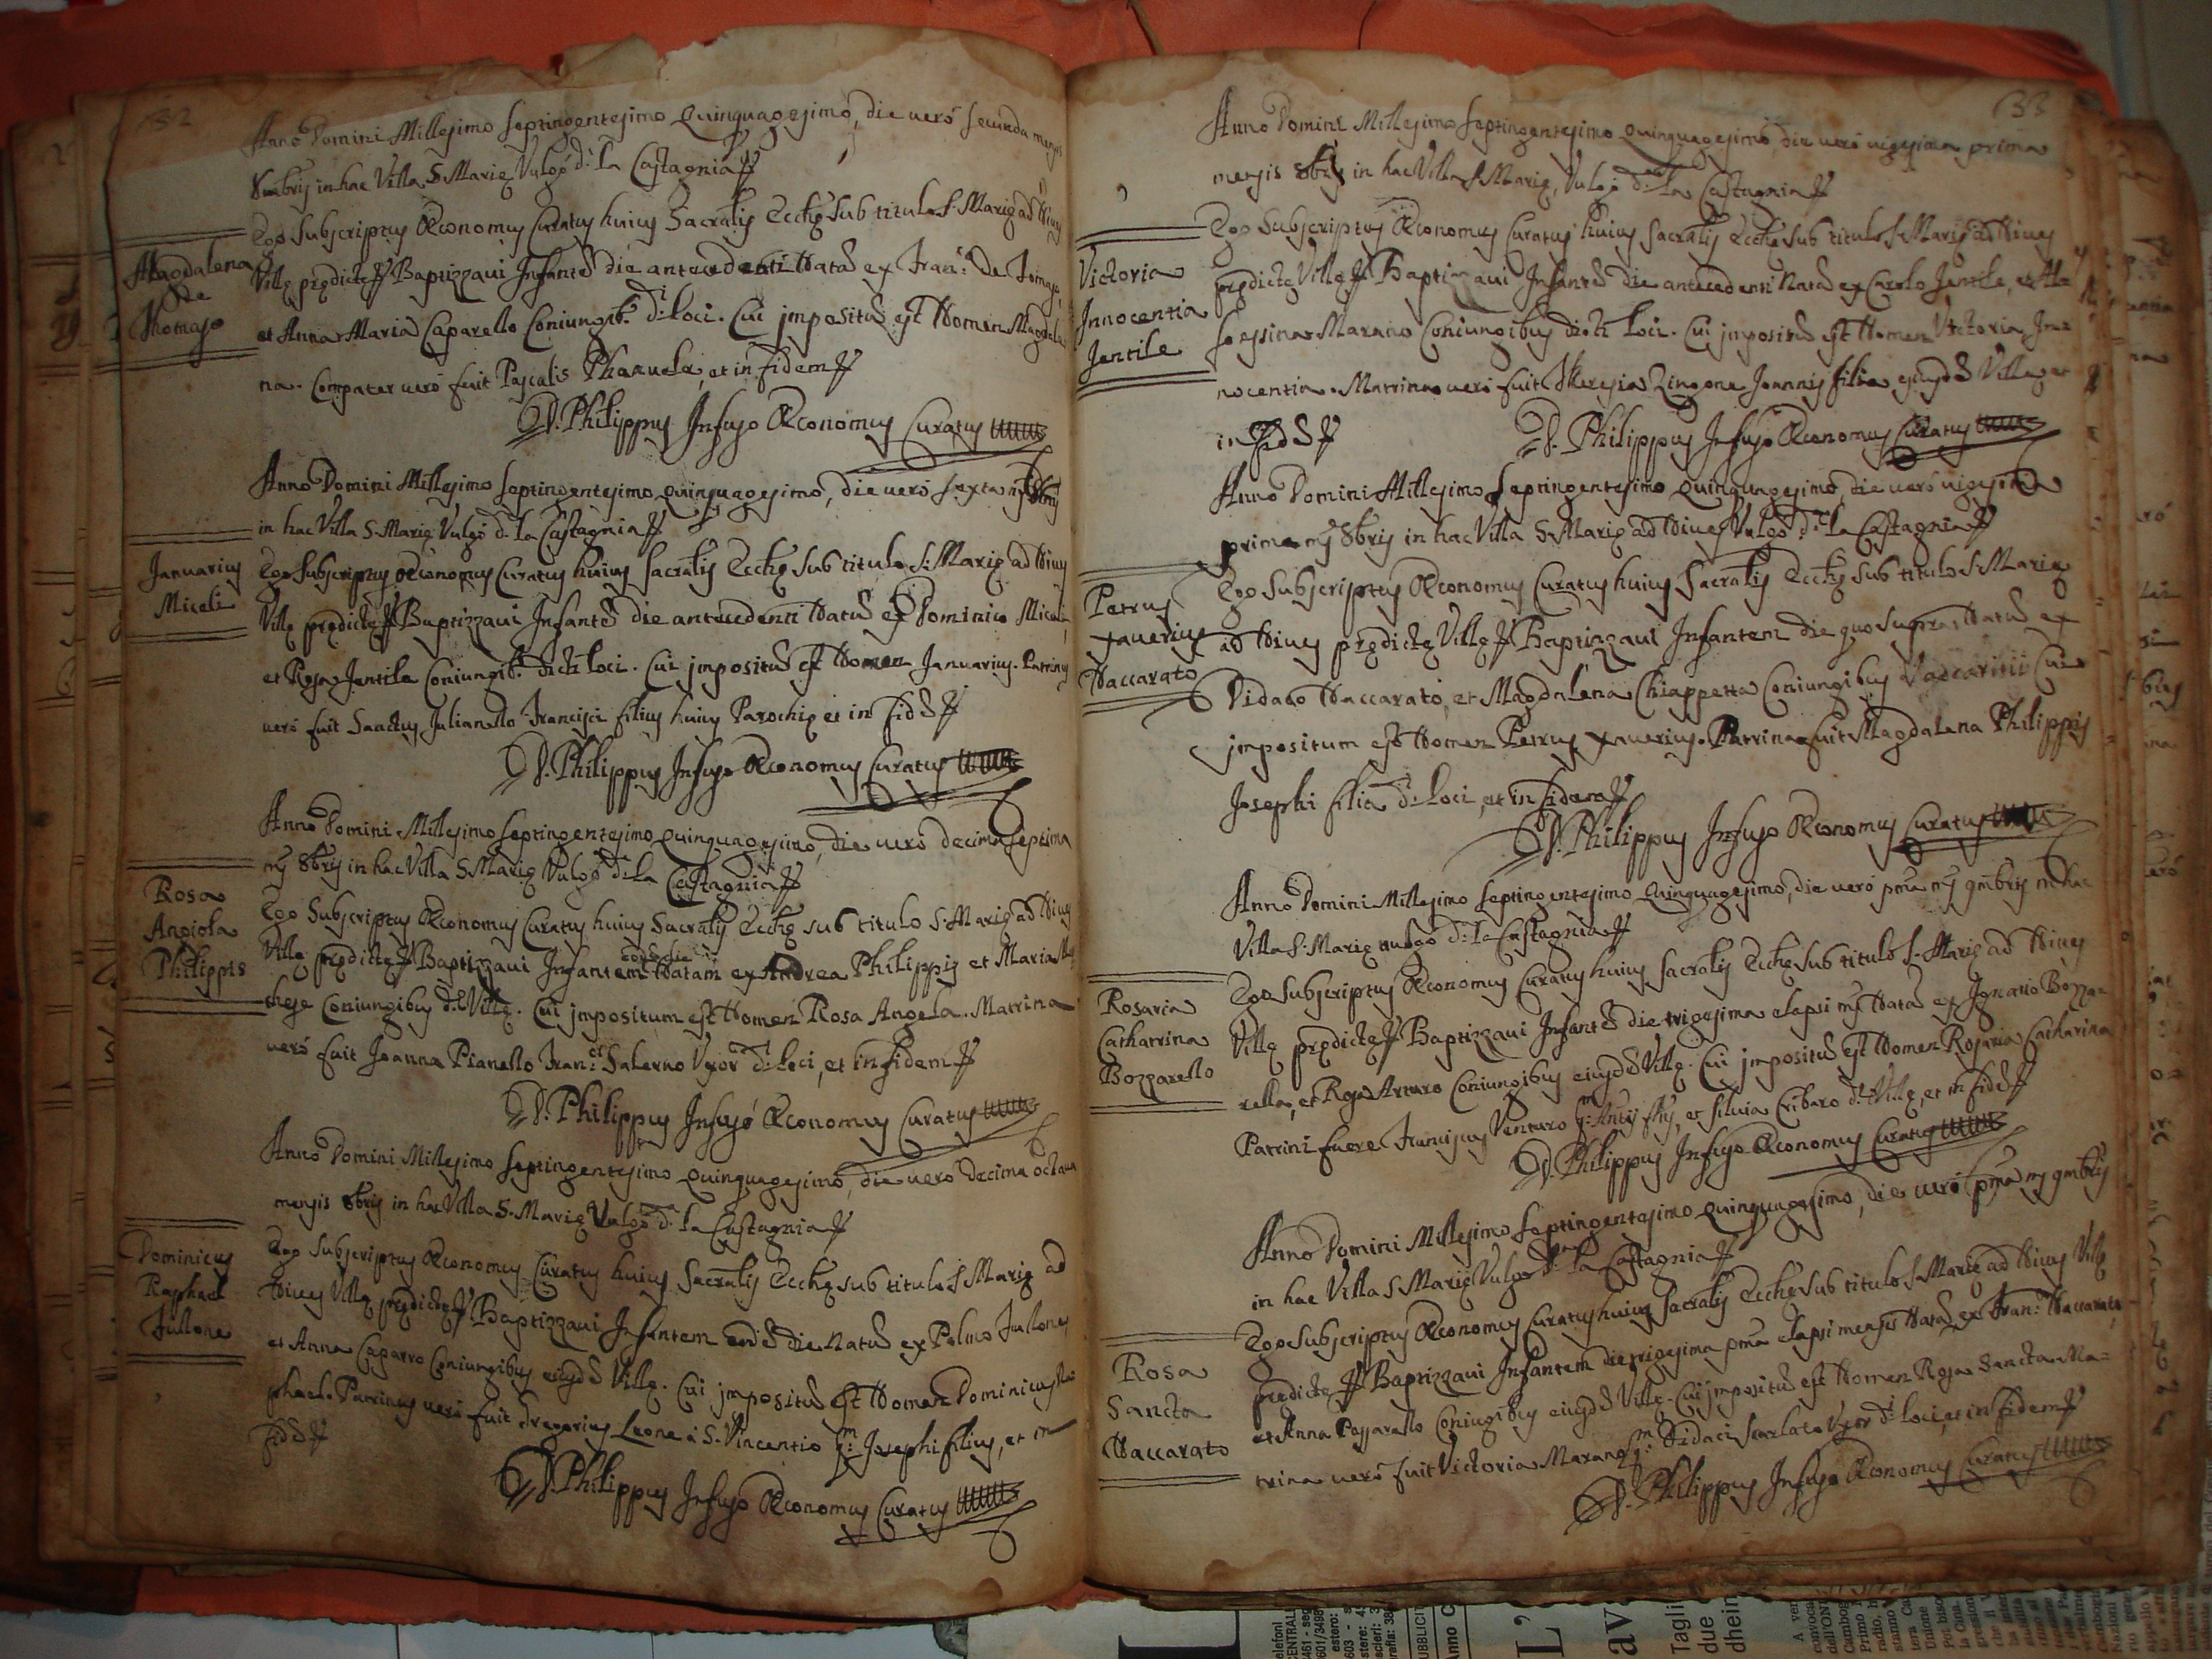 132
Anno Domini Millesimo Septingentesimo Quinquagesimo, die verò secunda mensis
8mbris in hac Villa S. Marię Vulgò d.ta la Castagnia
Ego Subscriptus Œconomus Curatus huius Sacralis Ecclę sub titulo S. Marię ad Nives
Villę prędictę Baptizzavi Infantē die antecedenti Natā ex Fran.co De Tomaso,
et Anna Maria Caparello Coniugib.s d.i Loci. Cui impositū est Nomen Magdale
na. Compater verò fuit Pascalis Pharuela, et in fidem
D. Philippus Infuso Œconomus Curatus
Magdalena
de
Thomaso
Anno Domini Millesimo Septingentesimo Quinquagesimo, die verò sexta ms 8bris
in hac Villa S. Marię Vulgò d.ta la Castagnia
Ego Subscriptus Œconomus Curatus huius Sacralis Ecclę sub titulo S. Marię ad Nives
Villę prędictę Baptizzavi Infantē die antecedenti Natū ex Dominico Miceli,
et Rosa Jentile Coniugib.s dicti Loci. Cui impositū est Nomen Januarius. Patrinus
verò fuit Sanctus Julianello Francisci filius huius Parochię et in fidē
D. Philippus Infuso Œconomus Curatus
Januarius
Miceli
Anno Domini Millesimo Septingentesimo Quinquagesimo, die verò decima septima
ms 8bris in hac Villa S. Marię Vulgò d.ta la Castagnia
Ego Subscriptus Œconomus Curatus huius Sacralis Ecclę sub titulo S. Marię ad Nives
Villę prędictę Baptizzavi Infantem eodē die Natam ex Andrea Philippis et Maria
Coniugibus d.ę Villę. Cui impositum est Nomen Rosa Angela. Matrina
verò fuit Joanna Pianello Fran.ci Salerno Uxor d.i Loci, et in fidem
D. Philippus Infusó Œconomus Curatus
Rosa
Angiola
Philippis
Anno Domini Millesimo Septingentesimo Quinquagesimo, die verò decima octava
mensis 8bris in hac Villa S. Marię Vulgò d.ta la Castagnia
Ego Subscriptus Œconomus Curatus huius Sacralis Ecclę sub titulo S. Marię ad
Nives Villę prędictę Baptizzavi Infantem eodē die Natū ex Palmo Fullone,
et Anna Caparro Coniugibus eiusdē Villę. Cui impositū est Nomen Dominicus Ra
phael. Patrinus verò fuit Gregorius Leone à S. Vincentio q.m Josephi filius, et in
fidē
D. Philippus Infuso Œconomus Curatus
Dominicus
Raphael
Fullone
133
Anno Domini Millesimo Septingentesimo Quinquagesimo, die verò vigesima prima
mensis 8bris in hac Villa S. Marię, Vulgò d.ta la Castagnia
Ego Subscriptus Œconomus Curatus huius Sacralis Ecclę sub titulo S. Marię ad Nives
prędictę Villę Baptizzavi Infantē die antecedenti Natā ex Carolo Jentile, et
Marano Coniugibus dicti Loci. Cui impositū est Nomen Victoria In=
nocentia. Matrina verò fuit Theresia Zingone Joannis filia eiusdē Villę, et
in fidē D. Philippus Infuso Œconomus Curatus
Victoria
Innocentia
Jentile
Anno Domini Millesimo Septingentesimo Quinquagesimo, die verò vigesima
prima ms 8bris in hac Villa S. Marię ad Nives Vulgò d.ta la Castagnia
Ego Subscriptus Œconomus Curatus huius Sacralis Ecclę sub titulo S. Marię
ad Nives prędictę Villę Baptizzavi Infantem die quo supra Natū ex
Didaco Naccarato, et Magdalena Chiappetta Coniugibus Vaccaritii Cui
impositum est Nomen Petrus Xaverius. Patrina fuit Magdalena Philippis
Josephi filia d.i Loci, et in fidem
D. Philippus Infuso Œconomus Curatus
Petrus
Xaverius
Naccarato
Anno Domini Millesimo Septingentesimo Quinquagesimo, die verò pma ms 9mbris in hac
Villa S. Marię vulgò d.ta la Castagnia
Ego Subscriptus Œconomus Curatus huius Sacralis Ecclę sub titulo S. Marię ad Nives
Villę prędictę Baptizzavi Infantē die trigesima elapsi ms Natā ex Ignatio Bozza=
rello, et Rosa Arturo Coniugibus eiusdē Villę. Cui impositū est Nomen Rosaria Catharina
Patrini fuere Franciscus Venturo q.m Antii filius, et Silvia Cribaro d.ę Villę, et in fidē
D. Philippus Infuso Œconomus Curatus
Rosaria
Catharina
Bozzarello
Anno Domini Millesimo Septingentesimo Quinquagesimo, die verò pma ms 9mbris
in hac Villa S. Marię Vulgò d.ta la Castagnia
Ego Subscriptus Œconomus Curatus huius Sacralis Ecclę sub titulo S. Marię ad Nives Villę
prędictę Baptizzavi Infantem die trigesima pma elapsi mensis Natā ex Fran.co Naccarato,
et Anna Pozzarello Coniugibus eiusdē Villę. Cui impositū est Nomen Rosa Sancta. Ma=
trina verò fuit Victoria Marano q.m Didaci Scarlato Uxor d.i Loci, et in fidem
D. Philippus Infuso Œconomus Curatus
Rosa
Sancta
Naccarato